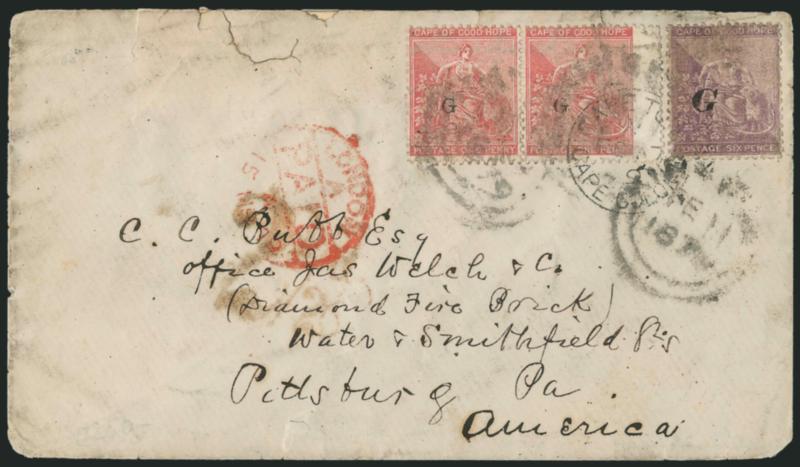 CAPE OF GOOD HOPE
G
POSTAGE ONE PENNY
CAPE OF GOOD HOPE
G
POSTAGE ONE PENNY
CAPE OF GOOD HOPE
G
POSTAGE SIX PENCE
LONDON
PAID
C. C. Bubb Esq
office Jas Welch & Co.
(Diamond Fire Brick)
Water & Smithfield Sts
Pittsburg Pa
America